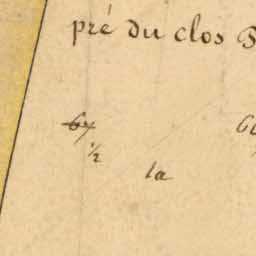 pré du clos
67
1/2
la